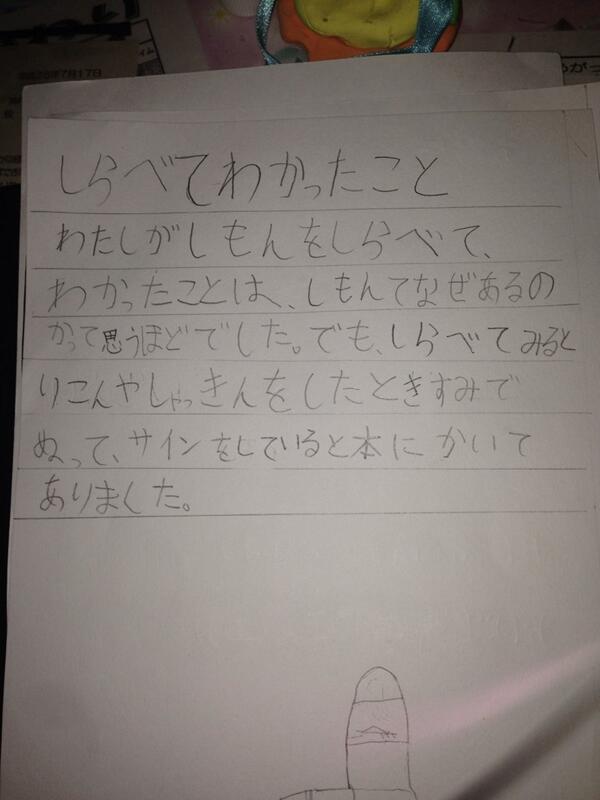 7月17日
しらべてわかったこと
わたしがしもんをしらべて、
わかったことは、しもんてなぜあるの
かって思うほどでした。でも、しらべてみると
りこんやしゃっきんをしたときすみで
ぬって、サインをしていると本にかいて
ありました。